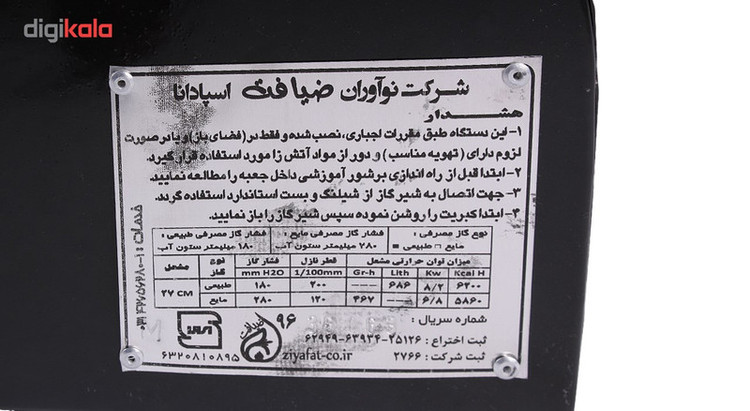 digikala
شرکت نوآوران ضیافت اسپادانا
هشدار
۱- این دستگاه طبق مقررات اجباری، نصب شده و فقط در (فضای باز) و یا در صورت
لزوم دارای (تهویه مناسب) و دور از مواد آتش زا مورد استفاده قرار گیرد.
۲- ابتدا قبل از راه اندازی برشور آموزشی داخل جعبه را مطالعه نمایید.
۳- جهت اتصال به شیر گاز از شیلنگ و بست استاندارد استفاده گردد.
۴- ابتدا کبریت را روشن نموده سپس شیر گاز را باز نمایید.
نوع گاز مصرفی : فشار گاز مصرفی مایع : فشار گاز مصرفی طبیعی :
مایع طبیعی ۲۸۰ میلیمتر ستون آب ۱۸۰ میلیمتر ستون آب
میزان توان حرارتی مشعل قطر نازل فشار گاز نوع گاز مشعل
Kcal H Kw Lith Gr-h 1/100mm mm H2O
۶۲۰۰ ۸/۲ ۶۸۶ --- ۲۰۰ ۱۸۰ طبیعی ۲۷ CM
۵۸۶۰ ۶/۸ --- ۴۶۷ ۱۲۰ ۲۸۰ مایع
شماره سریال :
ثبت اختراع : ۲۵۱۲۶-۶۳۹۳۴-۶۲۹۴۹
ثبت شرکت : ۲۷۶۶
۹۶
ضیافت
ziyafat-co.ir
۶۳۲۰۸۱۰۸۹۵
خدمات :